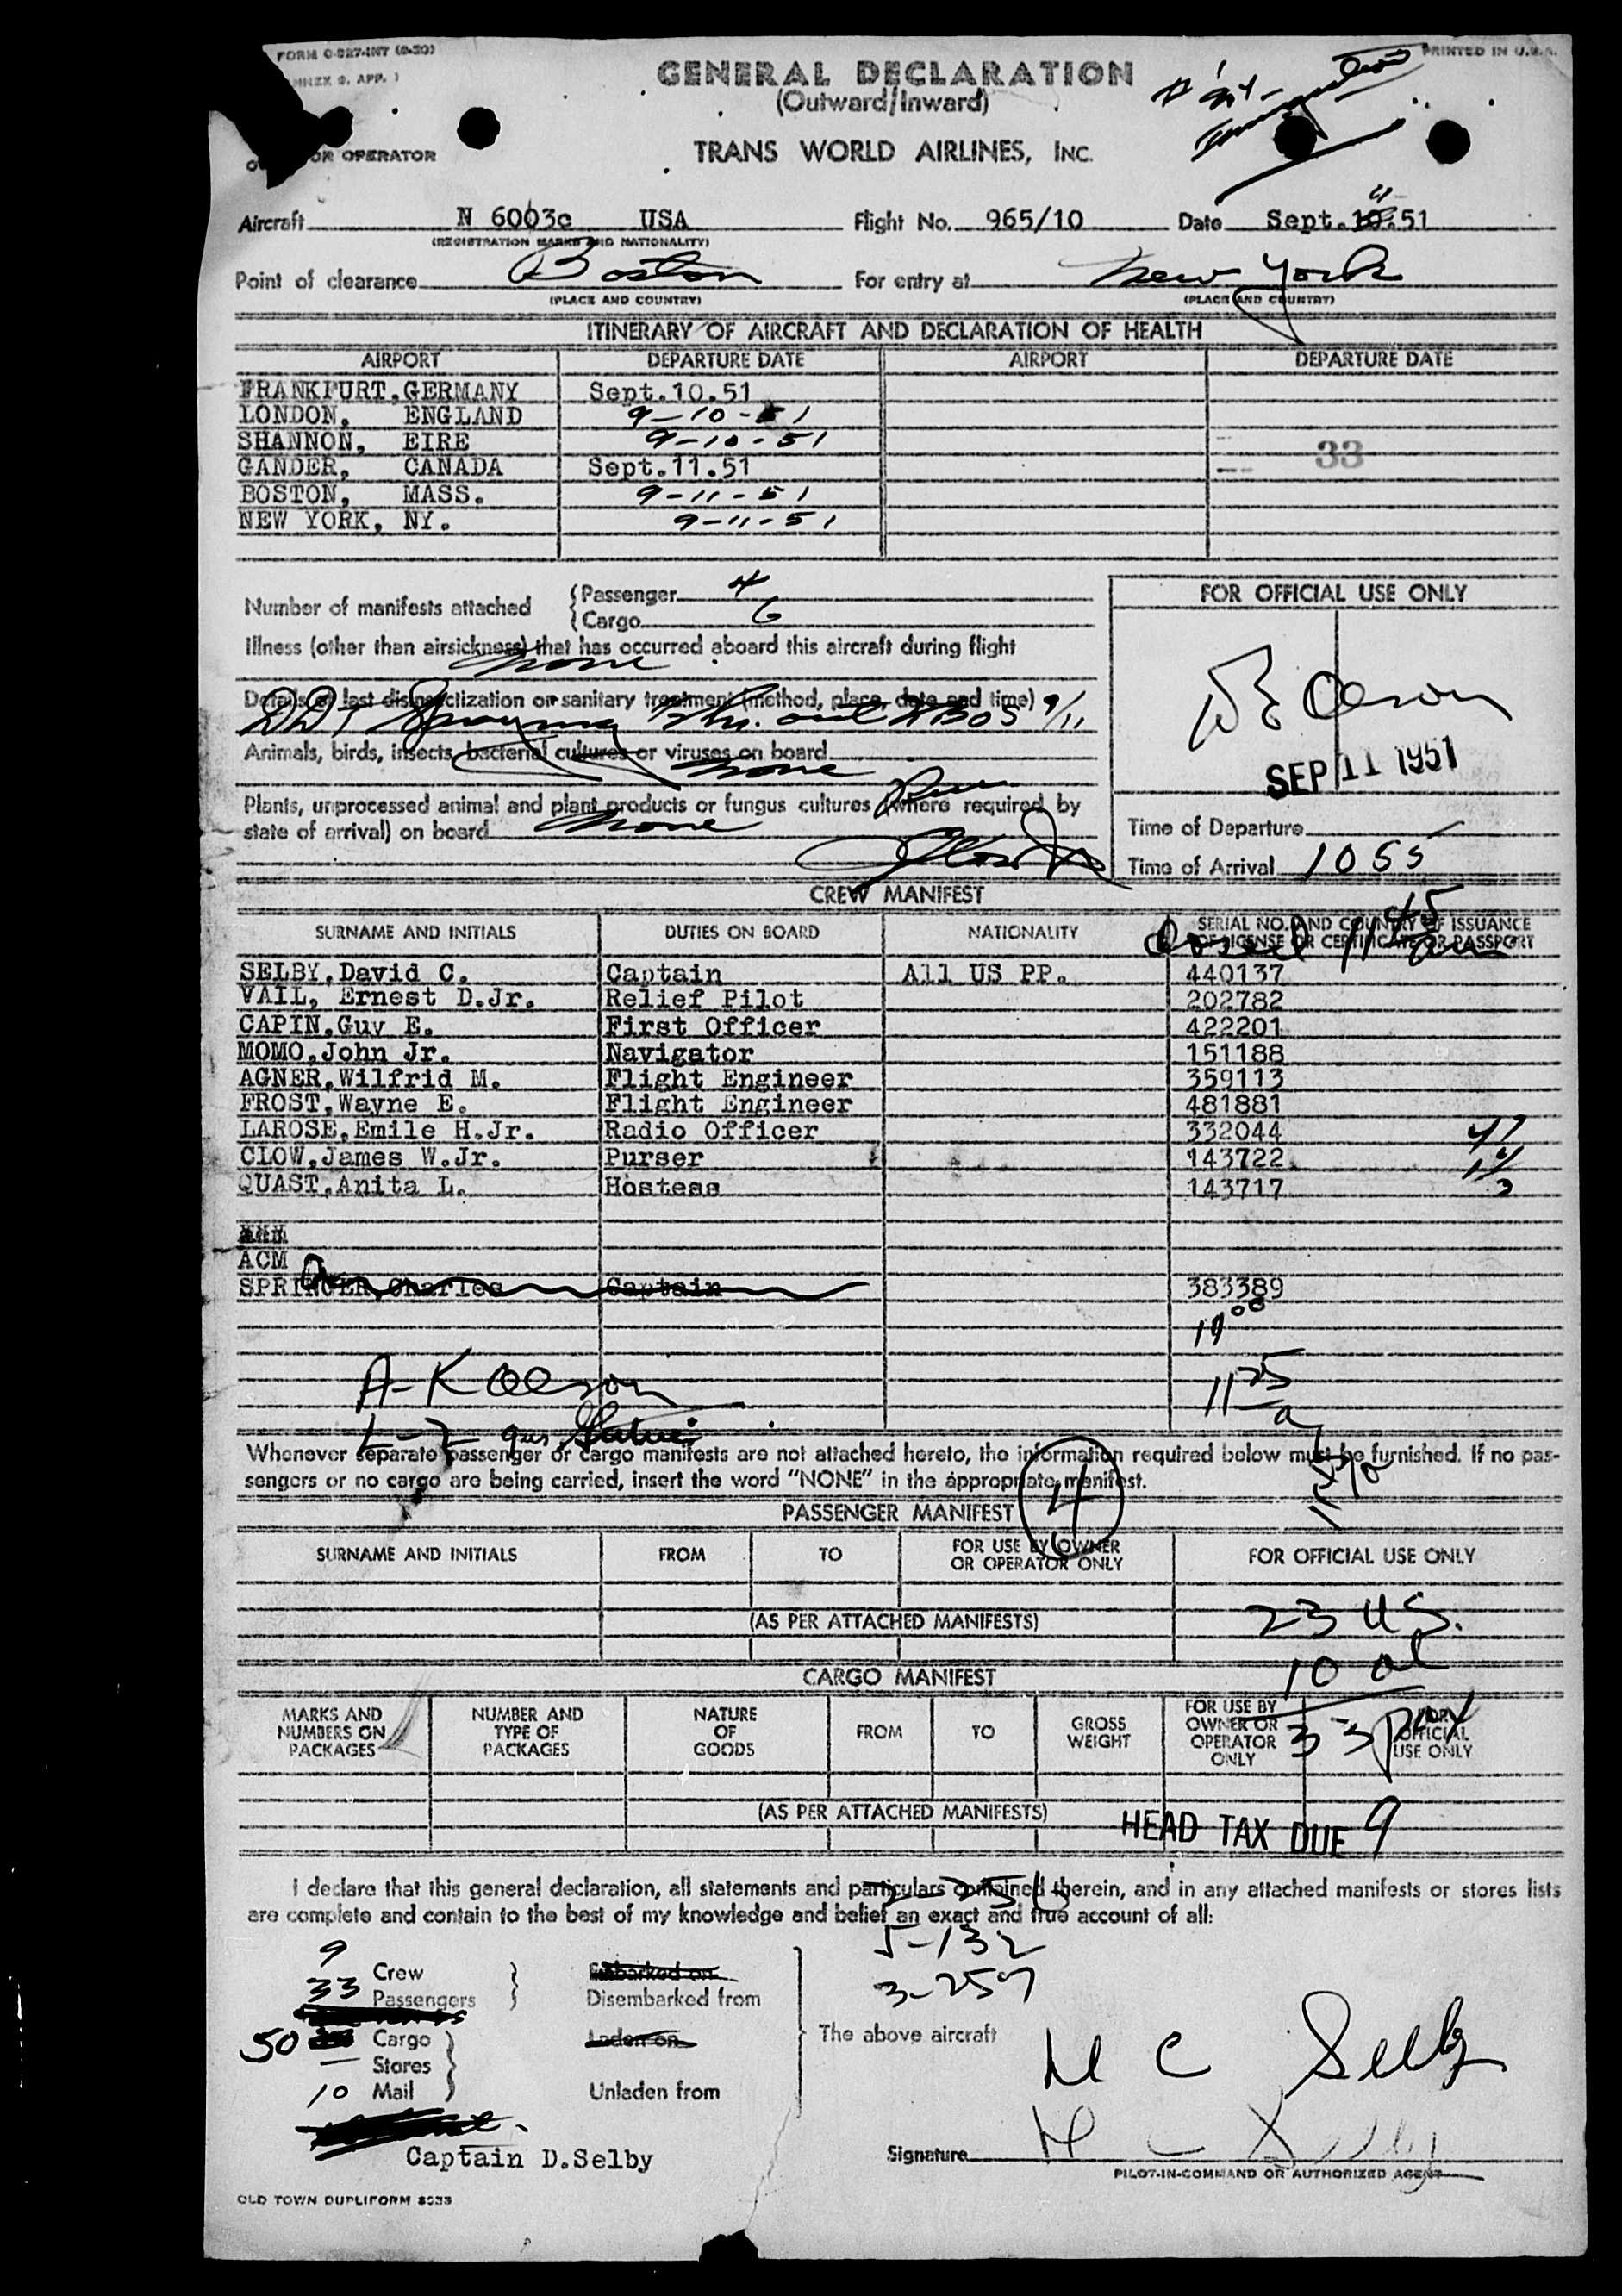 FORM O-927-INT (8-50)
PRINTED IN U.S.A.
GENERAL DECLARATION
(Outward/Inward)
OR OPERATOR
TRANS WORLD AIRLINES, INC.
Aircraft N 6003c USA Flight No. 965/10 Date Sept.10.51
(REGISTRATION MARKS AND NATIONALITY)
Point of clearance Boston For entry at New York
(PLACE AND COUNTRY) (PLACE AND COUNTRY)
ITINERARY OF AIRCRAFT AND DECLARATION OF HEALTH
AIRPORT DEPARTURE DATE AIRPORT DEPARTURE DATE
FRANKFURT,GERMANY Sept.10.51
LONDON, ENGLAND 9-10-51
SHANNON, EIRE 9-10-51
33
GANDER, CANADA Sept.11.51
BOSTON, MASS. 9-11-51
NEW YORK, NY. 9-11-51
Number of manifests attached Passenger 4
Cargo 6
FOR OFFICIAL USE ONLY
Illness (other than airsickness) that has occurred aboard this aircraft during flight
none
Details of last disinsectization or sanitary treatment (method, place, date and time) 9/11
DDT
Olson
SEP 11 1951
Animals, birds, insects, bacterial cultures or viruses on board
none
Plants, unprocessed animal and plant products or fungus cultures (where required by
state of arrival) on board none
Time of Departure
Time of Arrival 1055
CREW MANIFEST
SURNAME AND INITIALS DUTIES ON BOARD NATIONALITY SERIAL NO. AND COUNTRY OF ISSUANCE
OF LICENSE OR CERTIFICATE OR PASSPORT
SELBY,David C. Captain All US PP. 440137
VAIL, Ernest D.Jr. Relief Pilot 202782
CAPIN,Guy E. First Officer 422201
MOMO,John Jr. Navigator 151188
AGNER,Wilfrid M. Flight Engineer 359113
FROST,Wayne E. Flight Engineer 481881
LAROSE,Emile H.Jr. Radio Officer 332044
CLOW,James W.Jr. Purser 143722
QUAST,Anita L. Hostess 143717
ACM
SPRINGER,Charles Captain 383389
11 00
A-K Olson
11 25
a
L-Z
Whenever separate passenger or cargo manifests are not attached hereto, the information required below must be furnished. If no pas-
sengers or no cargo are being carried, insert the word "NONE" in the appropriate manifest.
4
PASSENGER MANIFEST
SURNAME AND INITIALS FROM TO FOR USE BY OWNER
OR OPERATOR ONLY FOR OFFICIAL USE ONLY
(AS PER ATTACHED MANIFESTS) 23 US.
10 al
CARGO MANIFEST
MARKS AND
NUMBERS ON
PACKAGES NUMBER AND
TYPE OF
PACKAGES NATURE
OF
GOODS FROM TO GROSS
WEIGHT FOR USE BY
OWNER OR
OPERATOR
ONLY FOR
OFFICIAL
USE ONLY
33 pax
(AS PER ATTACHED MANIFESTS)
HEAD TAX DUE 9
I declare that this general declaration, all statements and particulars contained therein, and in any attached manifests or stores lists
are complete and contain to the best of my knowledge and belief an exact and true account of all:
5-132
3-257
9 Crew Embarked on
33 Passengers Disembarked from
50 Cargo Laden on
The above aircraft
Stores
10 Mail Unladen from
C Selby
Captain D.Selby
Signature C Selby
PILOT-IN-COMMAND OR AUTHORIZED AGENT
OLD TOWN DUPLIFORM 8533